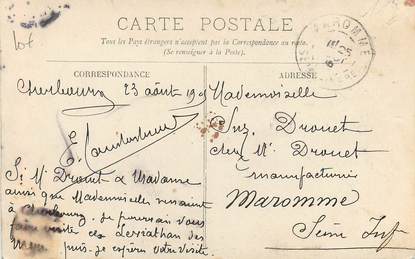 lot
CARTE POSTALE
Tous les Pays étrangers n'acceptent pas la Correspondance au recto.
(Se renseigner à la Poste).
CORRESPONDANCE
Cherbourg 23 août 19
Si Mr Drouet & Madame
ainsi que Mademoiselle venaient
à Cherbourg. Je pourrais vous
faire visiter ces Leviathan des
Mers. puis-je espérer votre visite
ADRESSE
MAROMME
Mademoizelle
Suz. Drouet
chez Mr Drouet
manufacturier
Maromme
Seine Infre